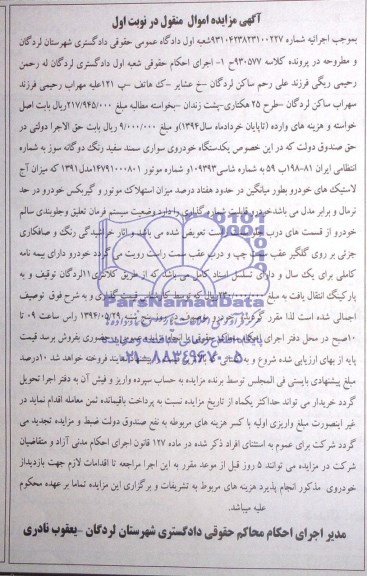 آگهی مزایده اموال منقول در نوبت اول
بموجب اجرائیه شماره ۹۳۱۰۴۲۳۸۲۳۱۰۰۲۲۷شعبه اول دادگاه عمومی حقوقی دادگستری شهرستان لردگان
و مطروحه در پرونده کلاسه ۹۳۰۵۷۷ح ۱- اجرای احکام حقوقی شعبه اول دادگستری لردگان له رحمن
رحیمی ریگی فرزند علی رحم ساکن لردگان -خ عشایر -ک هاتف -پ ۱۲۱علیه مهراب رحیمی فرزند
سهراب ساکن لردگان -طرح ۲۵ هکتاری-پشت زندان -بخواسته مطالبه مبلغ ۲۱۷/۹۴۵/۰۰۰ریال بابت اصل
خواسته و هزینه های وارده (تاپایان خردادماه سال۱۳۹۴)و مبلغ ۹/۰۰۰/۰۰۰ ریال بابت حق الاجرا دولتی در
حق صندوق دولت که در این خصوص یکدستگاه خودروی سواری سمند سفید رنگ دوگانه سوز به شماره
انتظامی ایران ۸۱-۱۹۸ب ۵۹ به شماره شاسی۱۰۹۳۹۳و شماره موتور ۱۴۷۹۱۰۰۰۸۰۱مدل۱۳۹۱ که میزان آج
لاستیک های خودرو بطور میانگین در حدود هفتاد درصد میزان استهلاک موتور و گیربکس خودرو در حد
نرمال و برابر مدل می باشد خودرو قابلیت شماره گذاری را دارد وضعیت سیستم فرمان تعلیق و جلوبندی سالم
خودرو از قسمت های درب جلو سمت راست تعویض شده می باشد و اثار خراشیدگی رنگ و صافکاری
جزئی بر روی گلگیر عقب سمت چپ و درب عقب سمت راست رویت می گردد خودرو دارای بیمه نامه
کاملی برای یک سال و دارای تسلسل اسناد کامل می باشد که از طریق کلانتری ۱۱لردگان توقیف و به
پارکینگ انتقال یافت به مبلغ ریال که توسط کارشناس قیمت گذاری و به شرح فوق توصیف
اجمالی شده است لذا مقرر گردید خودرو موصوف در روز پنج شنبه ۱۳۹۴/۰۵/۲۹ راس ساعت ۰۹ تا
۱۰صبح در محل دفتر اجرای احکام حقوقی از طریق مزایده عمومی و حضوری بفروش برسد قیمت
پایه از بهای ارزیابی شده شروع و به نمایند فروخته خواهد شد ۱۰درصد
مبلغ پیشنهادی بایستی فی المجلس توسط برنده مزایده به حساب سپرده واریز و فیش آن به دفتر اجرا تحویل
گردد خریدار می تواند حداکثر یکماه از تاریخ مزایده نسبت به پرداخت باقیمانده ثمن معامله اقدام نماید در
غیر اینصورت مبلغ واریزی اولیه با کسر هزینه های مربوطه به نفع صندوق دولت ضبط و مزایده تجدید می
گردد شرکت برای عموم به استثنای افراد ذکر شده در ماده ۱۲۷ قانون اجرای احکام مدنی آزاد و متقاضیان
شرکت در مزایده می توانند ۵ روز قبل از موعد مقرر به این اجرا مراجعه تا اقدامات لازم جهت بازدیداز
خودروی مذکور انجام پذیرد هزینه های مربوط به تشریفات و برگزاری این مزایده تماما بر عهده محکوم
علیه میباشد.
مدیر اجرای احکام محاکم حقوقی دادگستری شهرستان لردگان -یعقوب نادری
ParsNamadData
۰۲۱-۸۸۳۴۹۶۷۰-۵